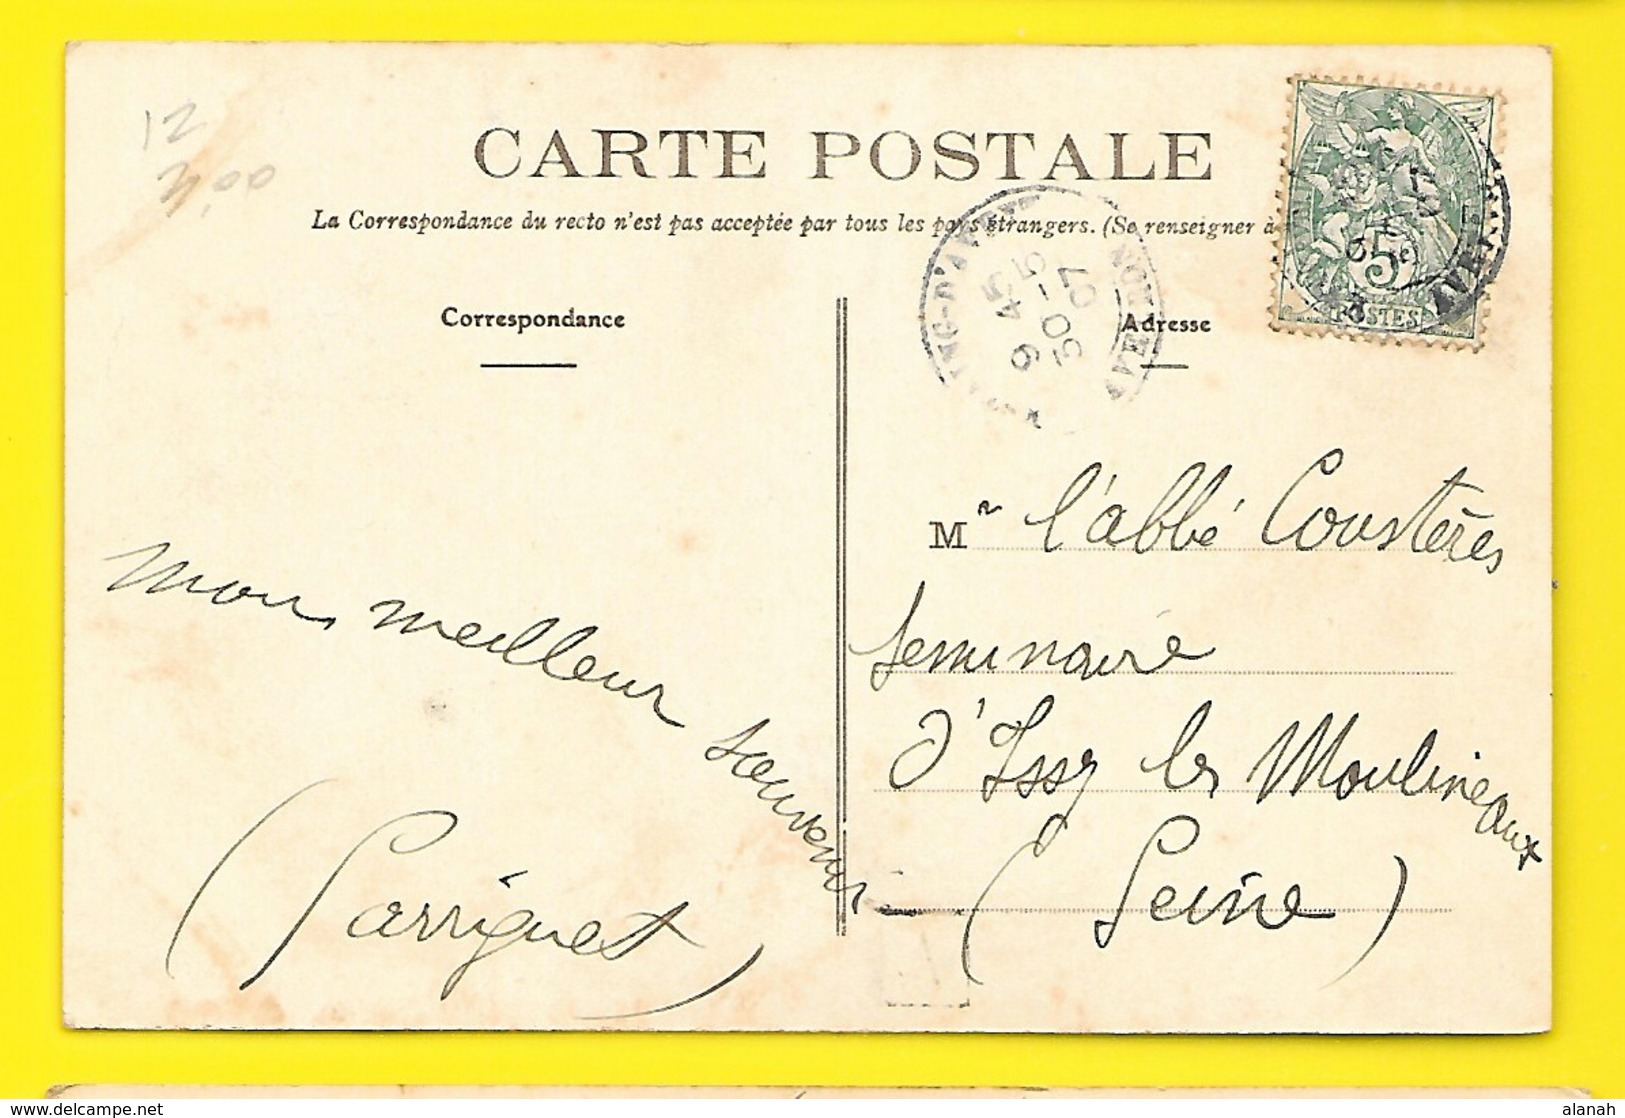 12
3,00
CARTE POSTALE
La Correspondance du recto n'est pas acceptée par tous les pays étrangers. (Se renseigner à
Correspondance
Adresse
9 45
30 - 5
07
AVEYRON
5
POSTES
Mr l'abbé Coustères
Seminaire
d'Issy les Moulineaux
(Seine)
mon meilleur souvenir
(Sarriguet)
delcampe.net
alanah